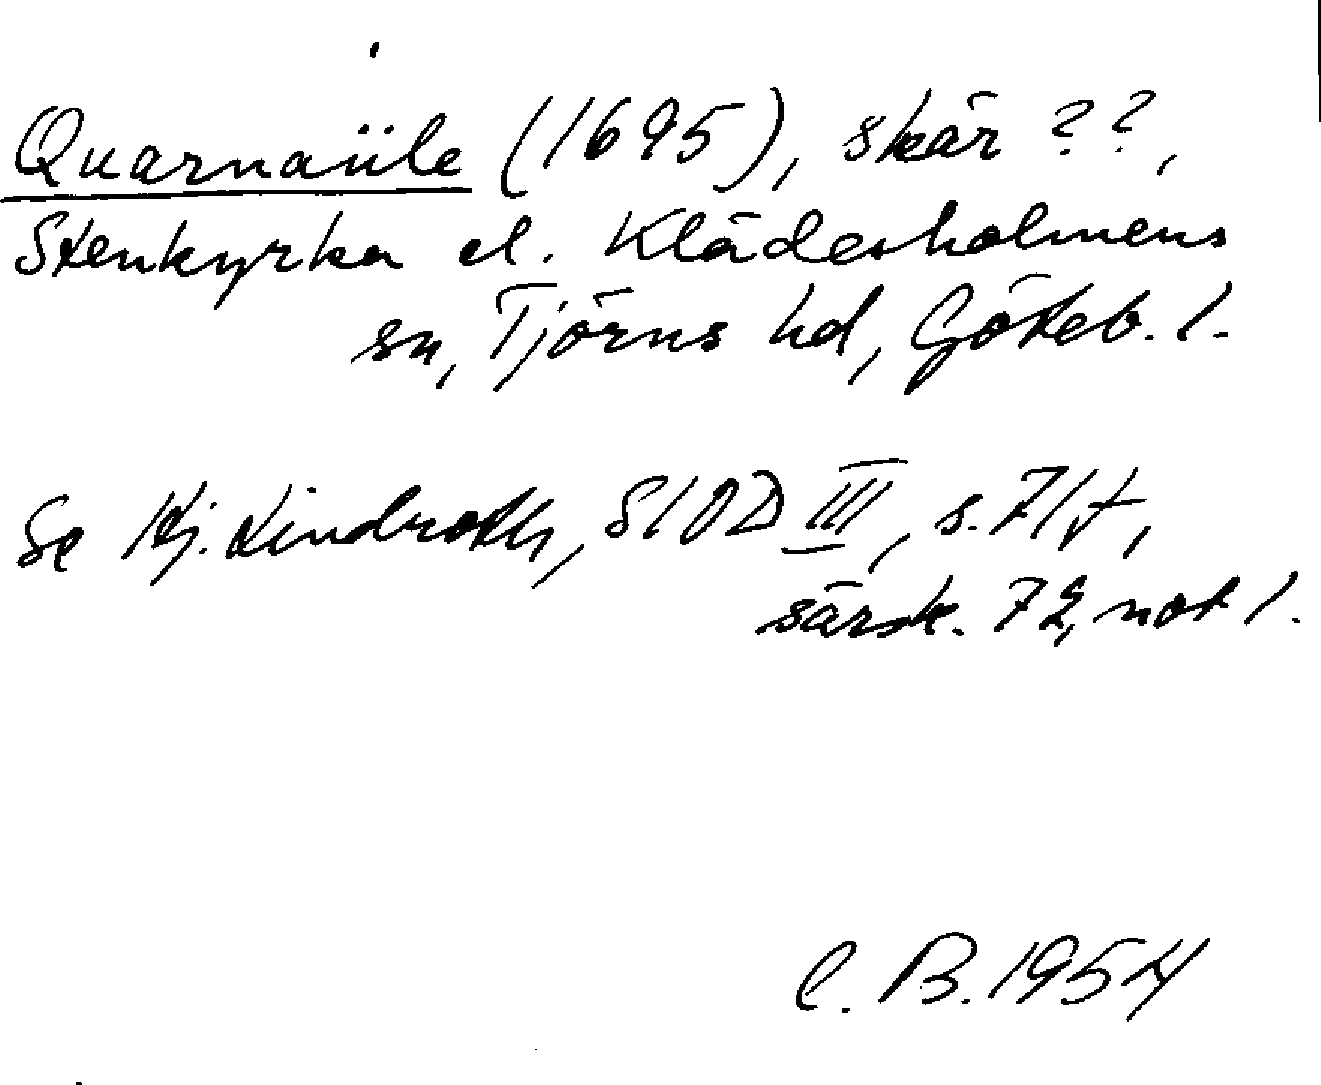 Quarnaüle (1695), skär ??,
Stenkyrka el. Klädesholmens
sn, Tjörns hd, Göteb. l.
Se Hj. Lindroth, SIOD III, s. 71 f,
särsk. 72, not 1.
C. B. 1954